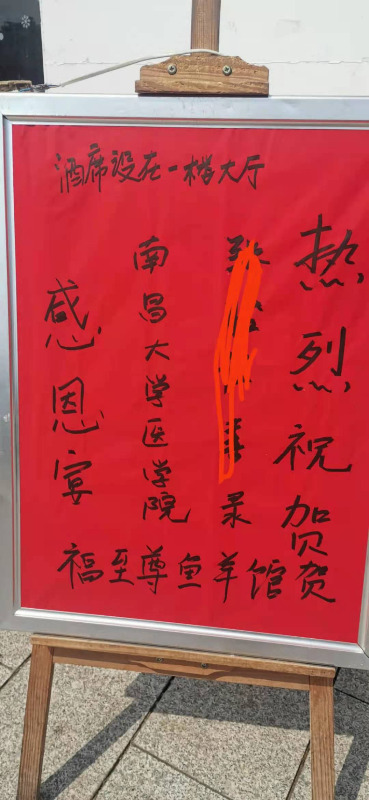 酒席设在一楼大厅
热烈祝贺
录
南昌大学医学院
感恩宴
福至尊鱼羊馆